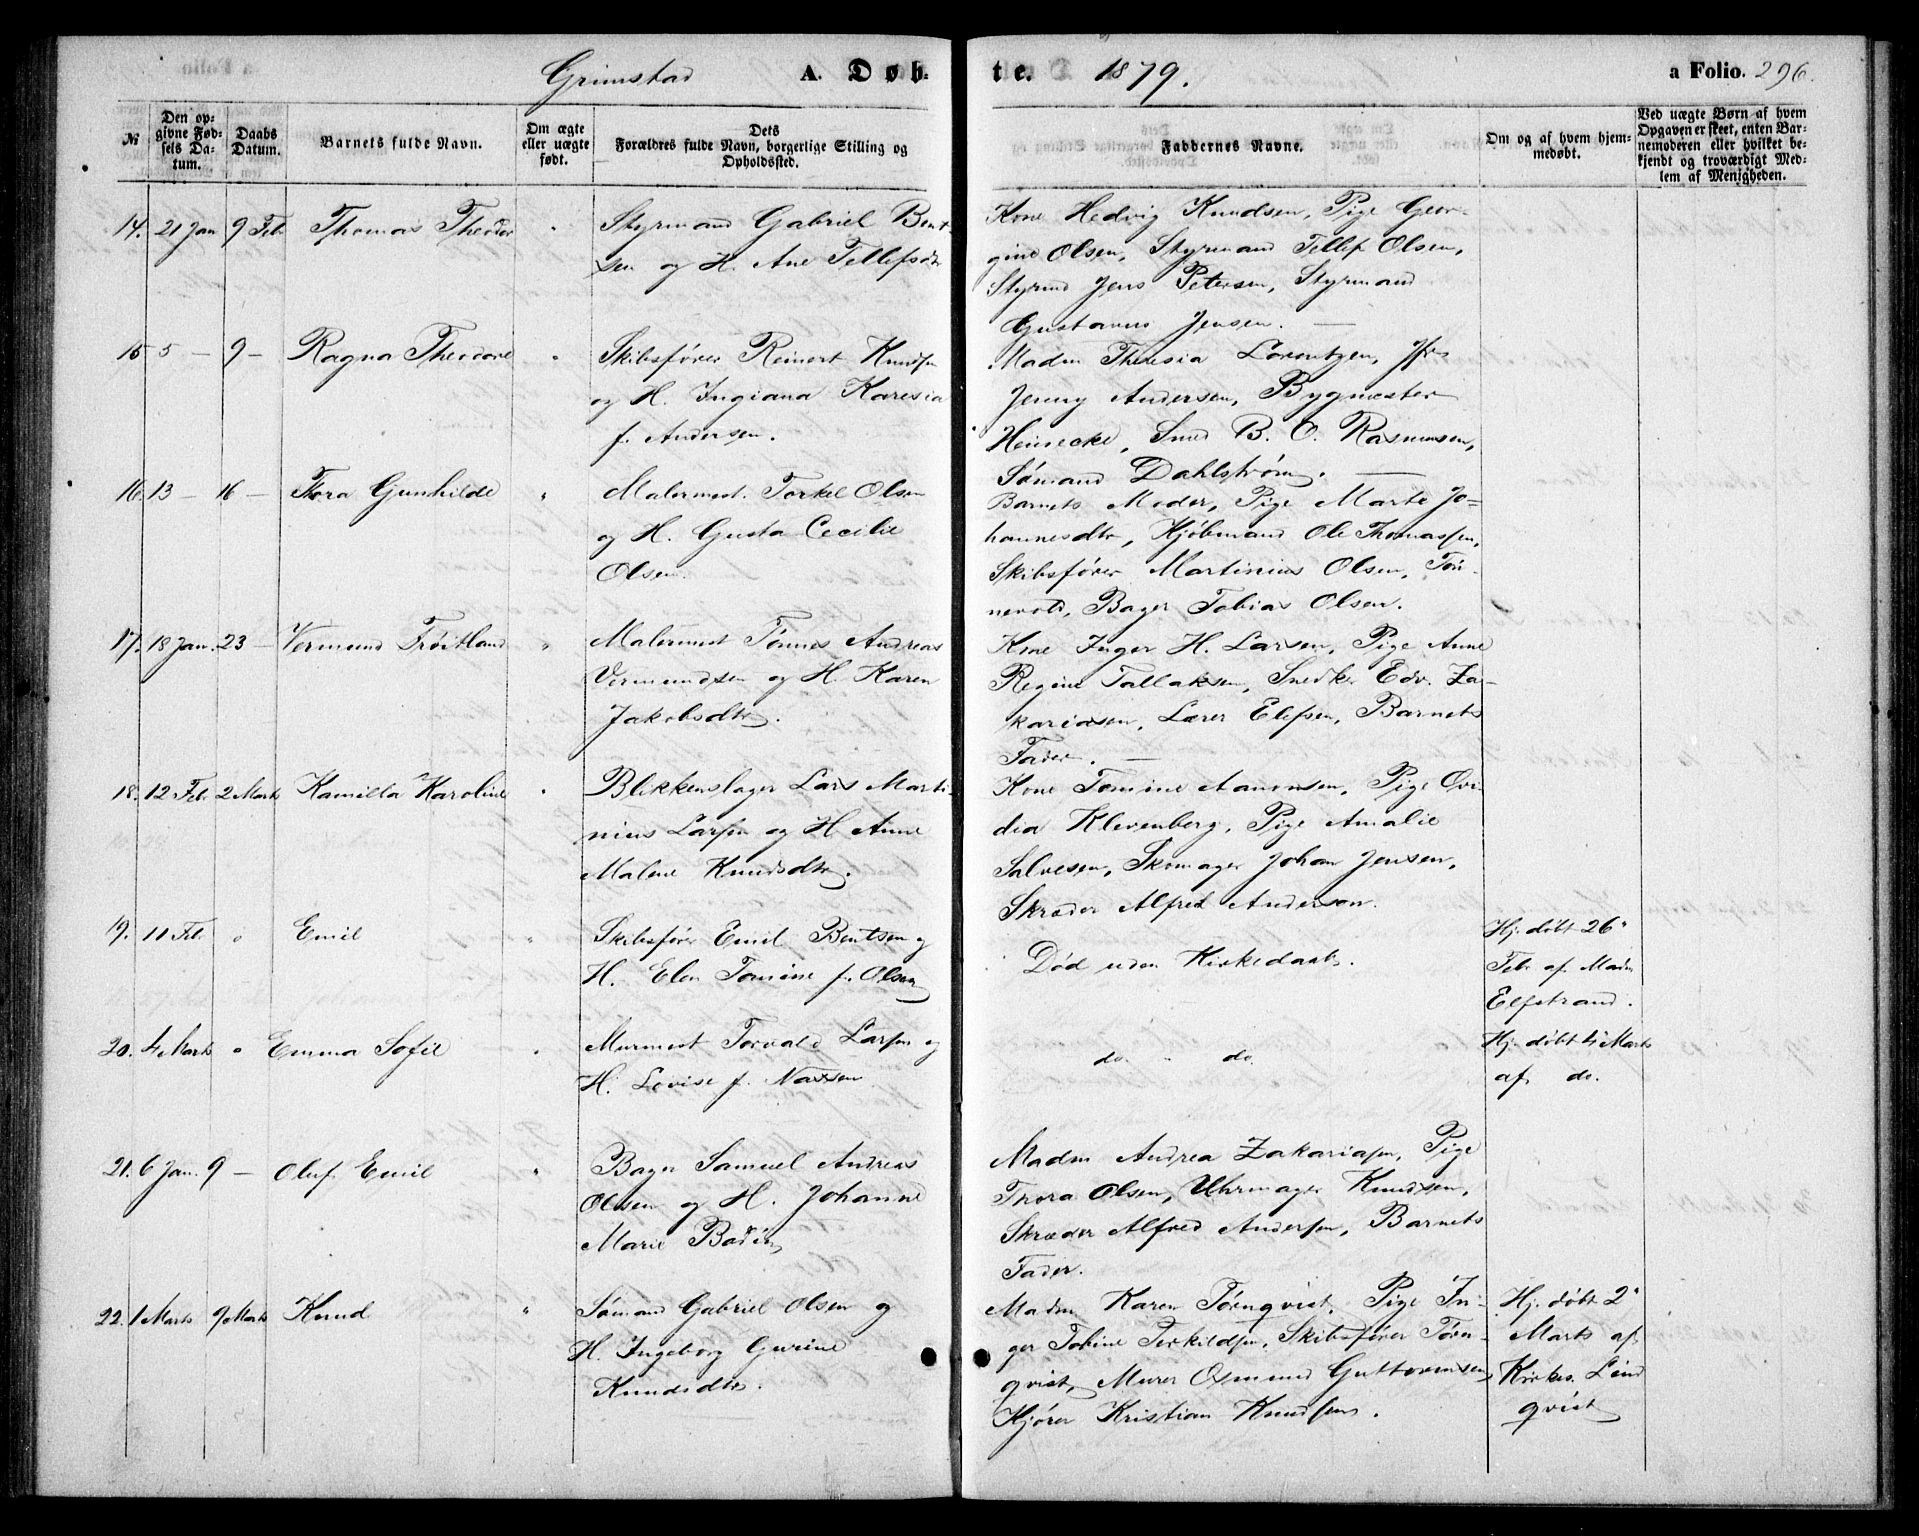 Grimstad A. Døb-
te. 1879. a Folio. 296.
№
Den op-
givne Fød-
sels Da-
tum.
Daabs
Datum.
Barnets fulde Navn.
Om ægte
eller uægte
født.
Dets
Forældres fulde Navn, borgerlige Stilling og
Opholdssted.
Faddernes Navne.
Om og af hvem hjem-
medøbt.
Ved uægte Børn af hvem
Opgaven er skeet, enten Bar-
nemoderen eller hvilket be-
kjendt og troværdigt Med-
lem af Menigheden.
14. 21 Jan 9 Febr Thomas Theodor "
Styrmand Gabriel Bent-
sen og H. Ane Tellefsdtr
Kone Hedvig Knudsen, Pige Geor-
gine Olsen, Styrmand Tellef Olsen,
Styrmd Jens Petersen, Styrmand
Gustavus Jensen. —
15 5 — 9 — Ragna Theodore "
Skibsfører Reinert Knudsen
og H. Ingiana Karesia
f. Andersen.
Madm Theresia Lorentzen, Jfr
Jenny Andersen, Bygmester
Heinecke, Smed B. O. Rasmussen,
Sømand Dahlstrøm. —
16. 13 — 16 — Thora Gunhilde "
Malermest. Torkel Olsen
og H. Gusta Cecilie
Olsen.
Barnets Moder, Pige Marte Jo-
hannesdtr, Kjøbmand Ole Thomassen,
Skibsfører Martinius Olsen, Tøn-
nevold, Bager Tobias Olsen.
17. 18 Jan. 23 — Vermund Trøitland "
Malermest Tønnes Andreas
Vermundsen og H. Karen
Jakobsdtr.
Kone Inger H. Larsen, Pige Anne
Regine Tallaksen, Snedker Edv. Za-
kariasen, Lærer Elefsen, Barnets
Fader. —
18. 12 Febr 2 Marts Kamilla Karoline "
Blikkenslager Lars Marti-
nius Larsen og H Anne
Malene Knudsdtr.
Kone Tomine Aanonsen, Pige Ovi-
dia Klevenberg, Pige Amalie
Salvesen, Skomager Johan Jensen,
Skræder Alfred Andersen.
19. 11 Febr " Emil "
Skibsfører Emil Bentsen og
H. Elen Tomine f. Olsen
Død uden Kirkedaab.
Hj. døbt 26"
Febr af Madm
Elfstrand.
20. 4 Marts " Emma Sofie "
Murmest Torvald Larsen og
H. Lovise f. Nassen
do. " do.
Hj. døbt 4" Marts
af do.
21. 6 Jan. 9 — Oluf Emil "
Bager Samuel Andreas
Olsen og H. Johanne
Marie Bodin
Madm Andrea Zakariasen, Pige
Thora Olsen, Uhrmager Knudsen,
Skræder Alfred Andersen, Barnets
Fader.
22. 1 Marts 9 Marts Knud "
Sømand Gabriel Olsen og
H. Ingeborg Gurine
Knudsdtr.
Madm Karen Tørnqvist, Pige In-
ger Tobine Terkildsen, Skibsfører Tørn-
qvist, Murer Osmund Guttormsen,
Kjører Kristian Knudsen.
Hj. døbt 2"
Marts af
Kirkes. Lind
qvist